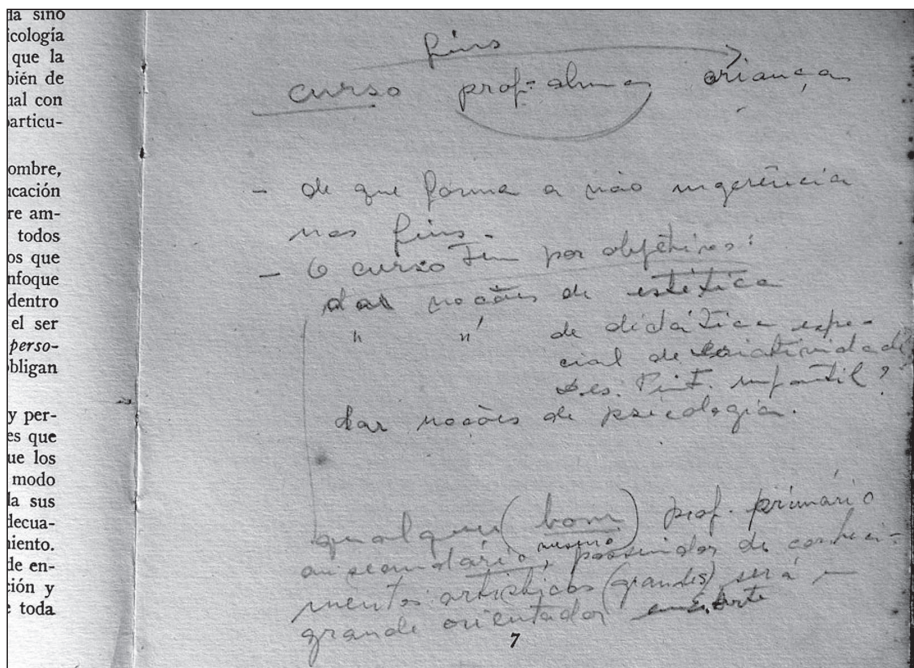 la sino
icología
que la
bién de
ual con
articu-
ombre,
icación
re am-
todos
os que
nfoque
dentro
el ser
perso-
bligan
y per-
es que
ue los
modo
la sus
decua-
iento.
de en-
ción y
toda
fins
curso prof-aluno criança
- de que forma a não ingerência
nos fins.
- O curso tem por objetivos:
dar noções de estética
" " de didática espe-
cial de criatividade
Des. Pint. infantil?
dar noções de psicologia.
qualquer (bom) prof. primário
ou secundário, mesmo possuidor de conheci-
mentos artísticos (grandes) será um
grande orientador em arte
7